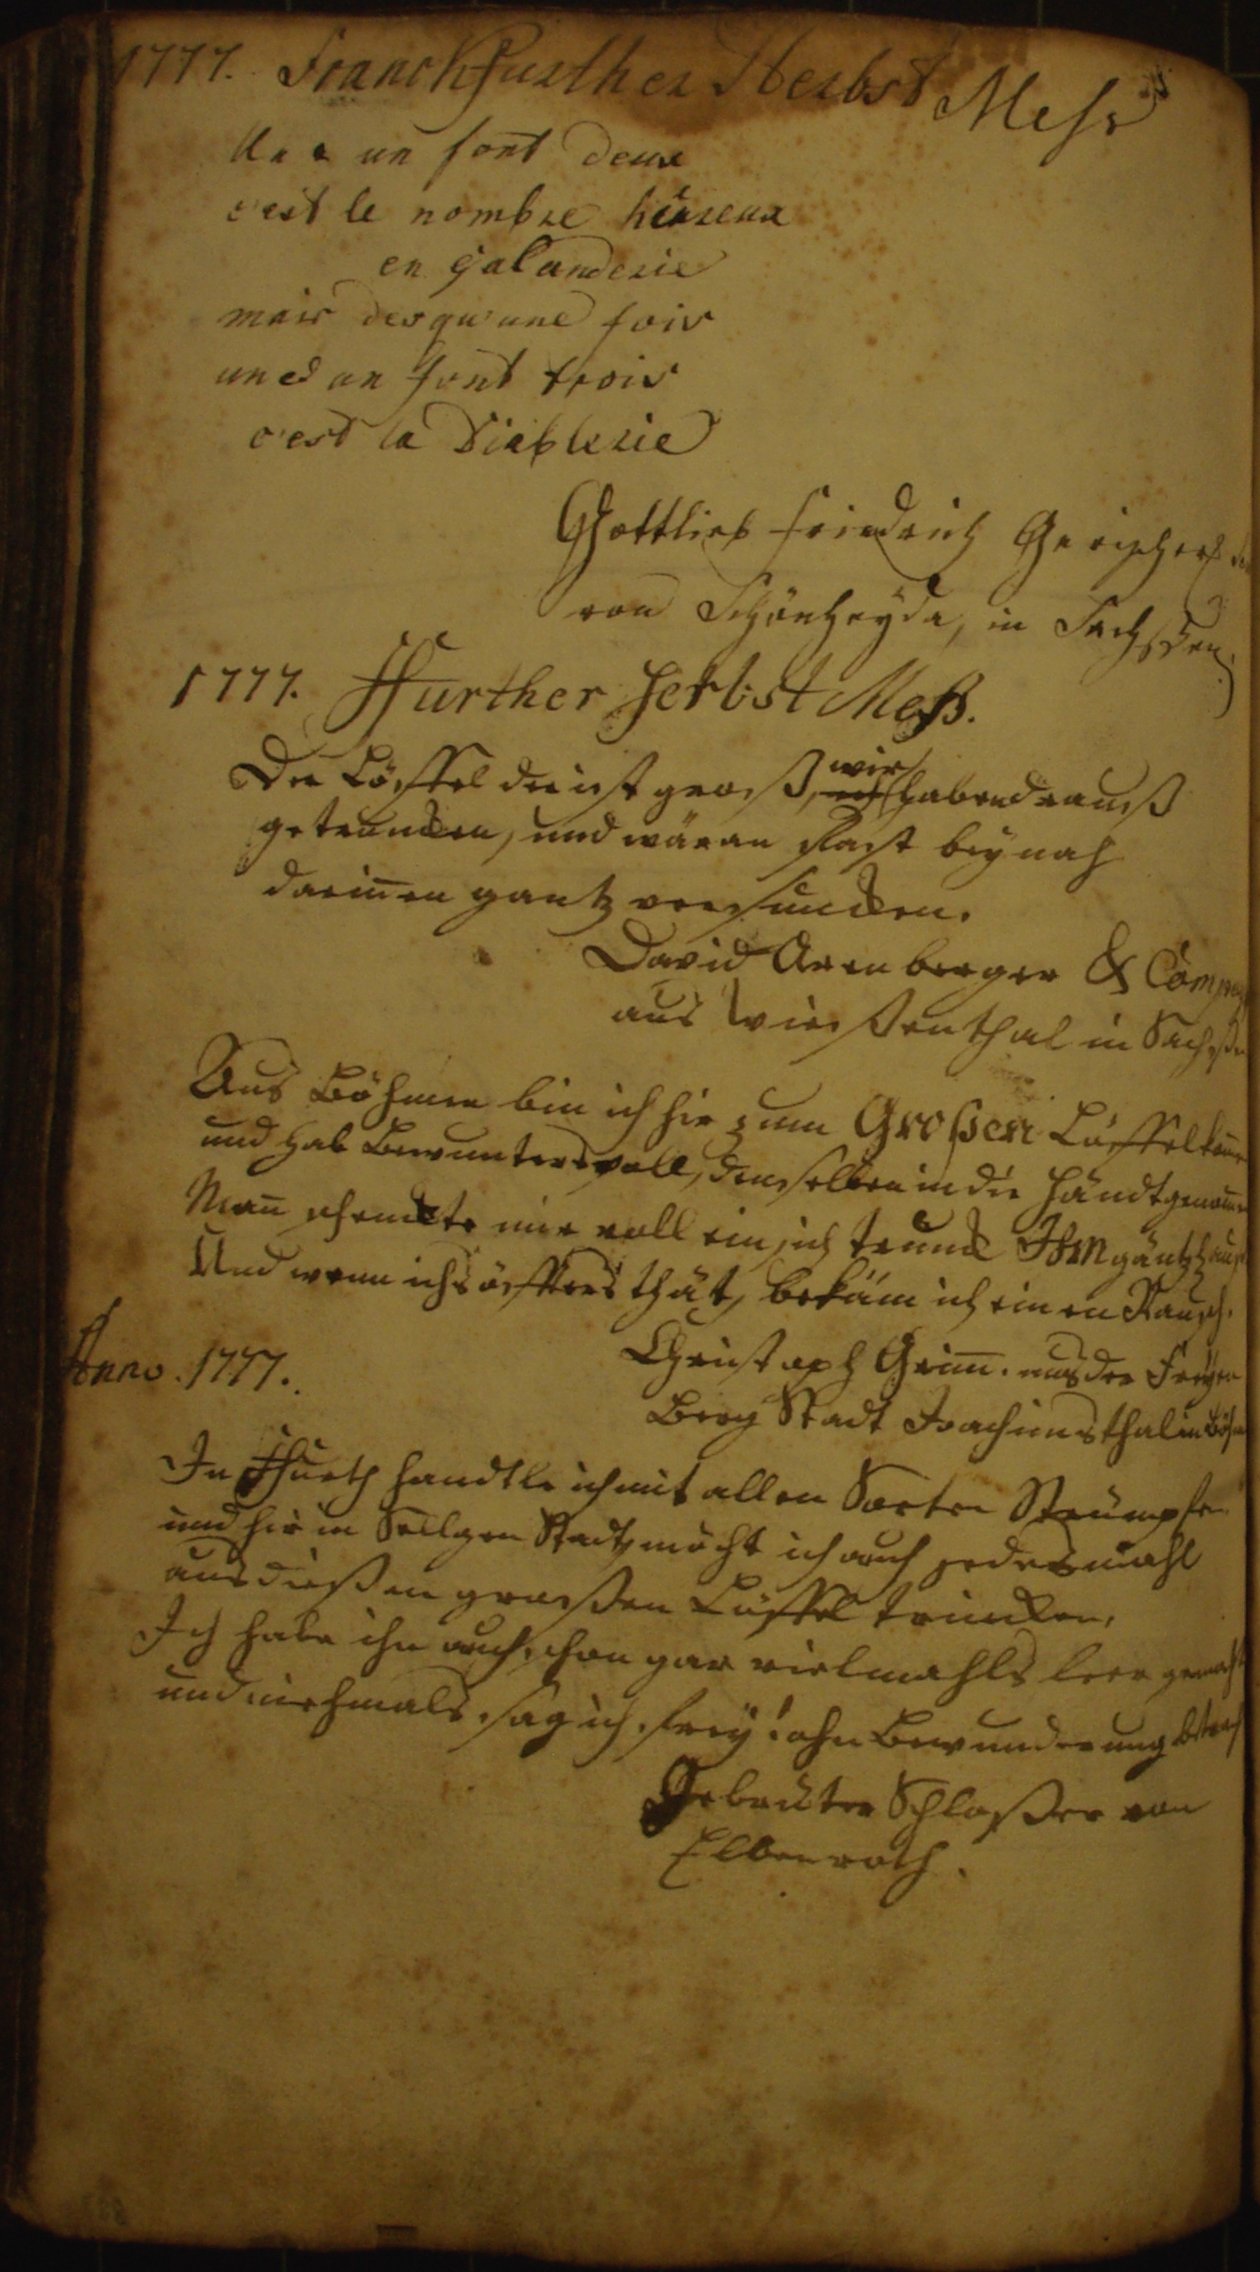 1777. Franckfurther Herbst Mess
Un e un font deux
c'est le nombre heureux
en galanderie
mais des qu'une fois
un ed un font trois
c'est la Diablerie
Gottlieb Friedrich
von Schönheyda, in Sachssen
1777. Ffurther Herbst Meß.
Der Löffel der ist groß, wir haben drauß
getruncken, und wären fast bey nah
dariñen gantz versuncken.
David Arenberger & Comp
aus Wiesenthal in Sachßen
Aus Böhmen bin ich hie zum Großen Löffel koṁen
und hab Bewunters voll, denselben in die Händt genoṁen
Mañ schenckte mir voll ein, ich trunck Ihn gäntzl: aus
Und wenn ichs öffters thät, bekäm ich einen Rausch.
Anno. 1777. Christoph Grim̄. aus der Freyen
Berg Stadt Joachimsthal in Böh
In Ffurth handtle ich mit allen Sorten Strümpfen
und hir in Seelgen Stadt möcht ich auch jedesmahl
aus dießen großen Löffel trincken,
Ich habe ihn auch schon gar vielmahls leer gemacht
und niehmals, sag ich, frey! ohn Bewunderung betracht
Gebrüter Schloßer von
Elbenroth.